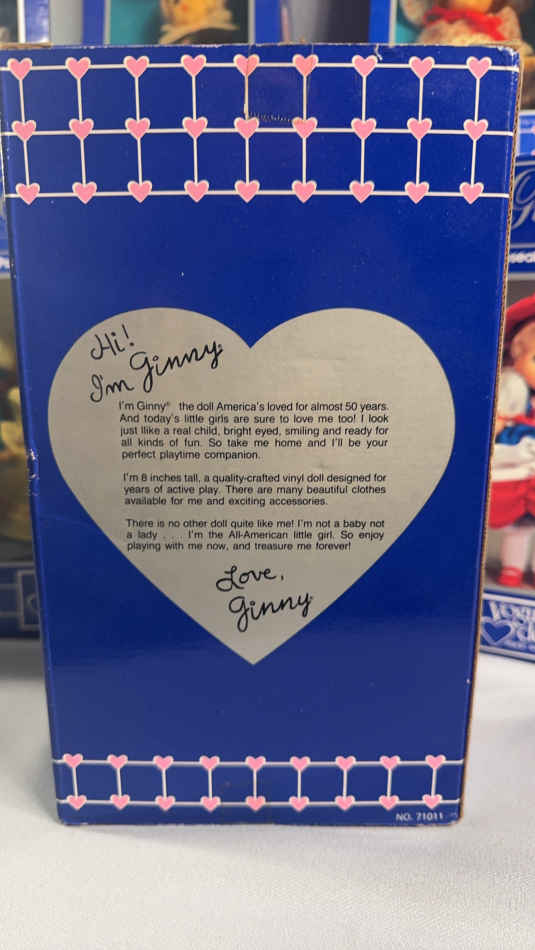 Hi!
I'm Ginny®
I'm Ginny® the doll America's loved for almost 50 years.
And today's little girls are sure to love me too! I look
just llike a real child, bright eyed, smiling and ready for
all kinds of fun. So take me home and I'll be your
perfect playtime companion.
I'm 8 inches tall, a quality-crafted vinyl doll designed for
years of active play. There are many beautiful clothes
available for me and exciting accessories.
There is no other doll quite like me! I'm not a baby not
a lady . . . I'm the All-American little girl. So enjoy
playing with me now, and treasure me forever!
Love,
Ginny
NO. 71011